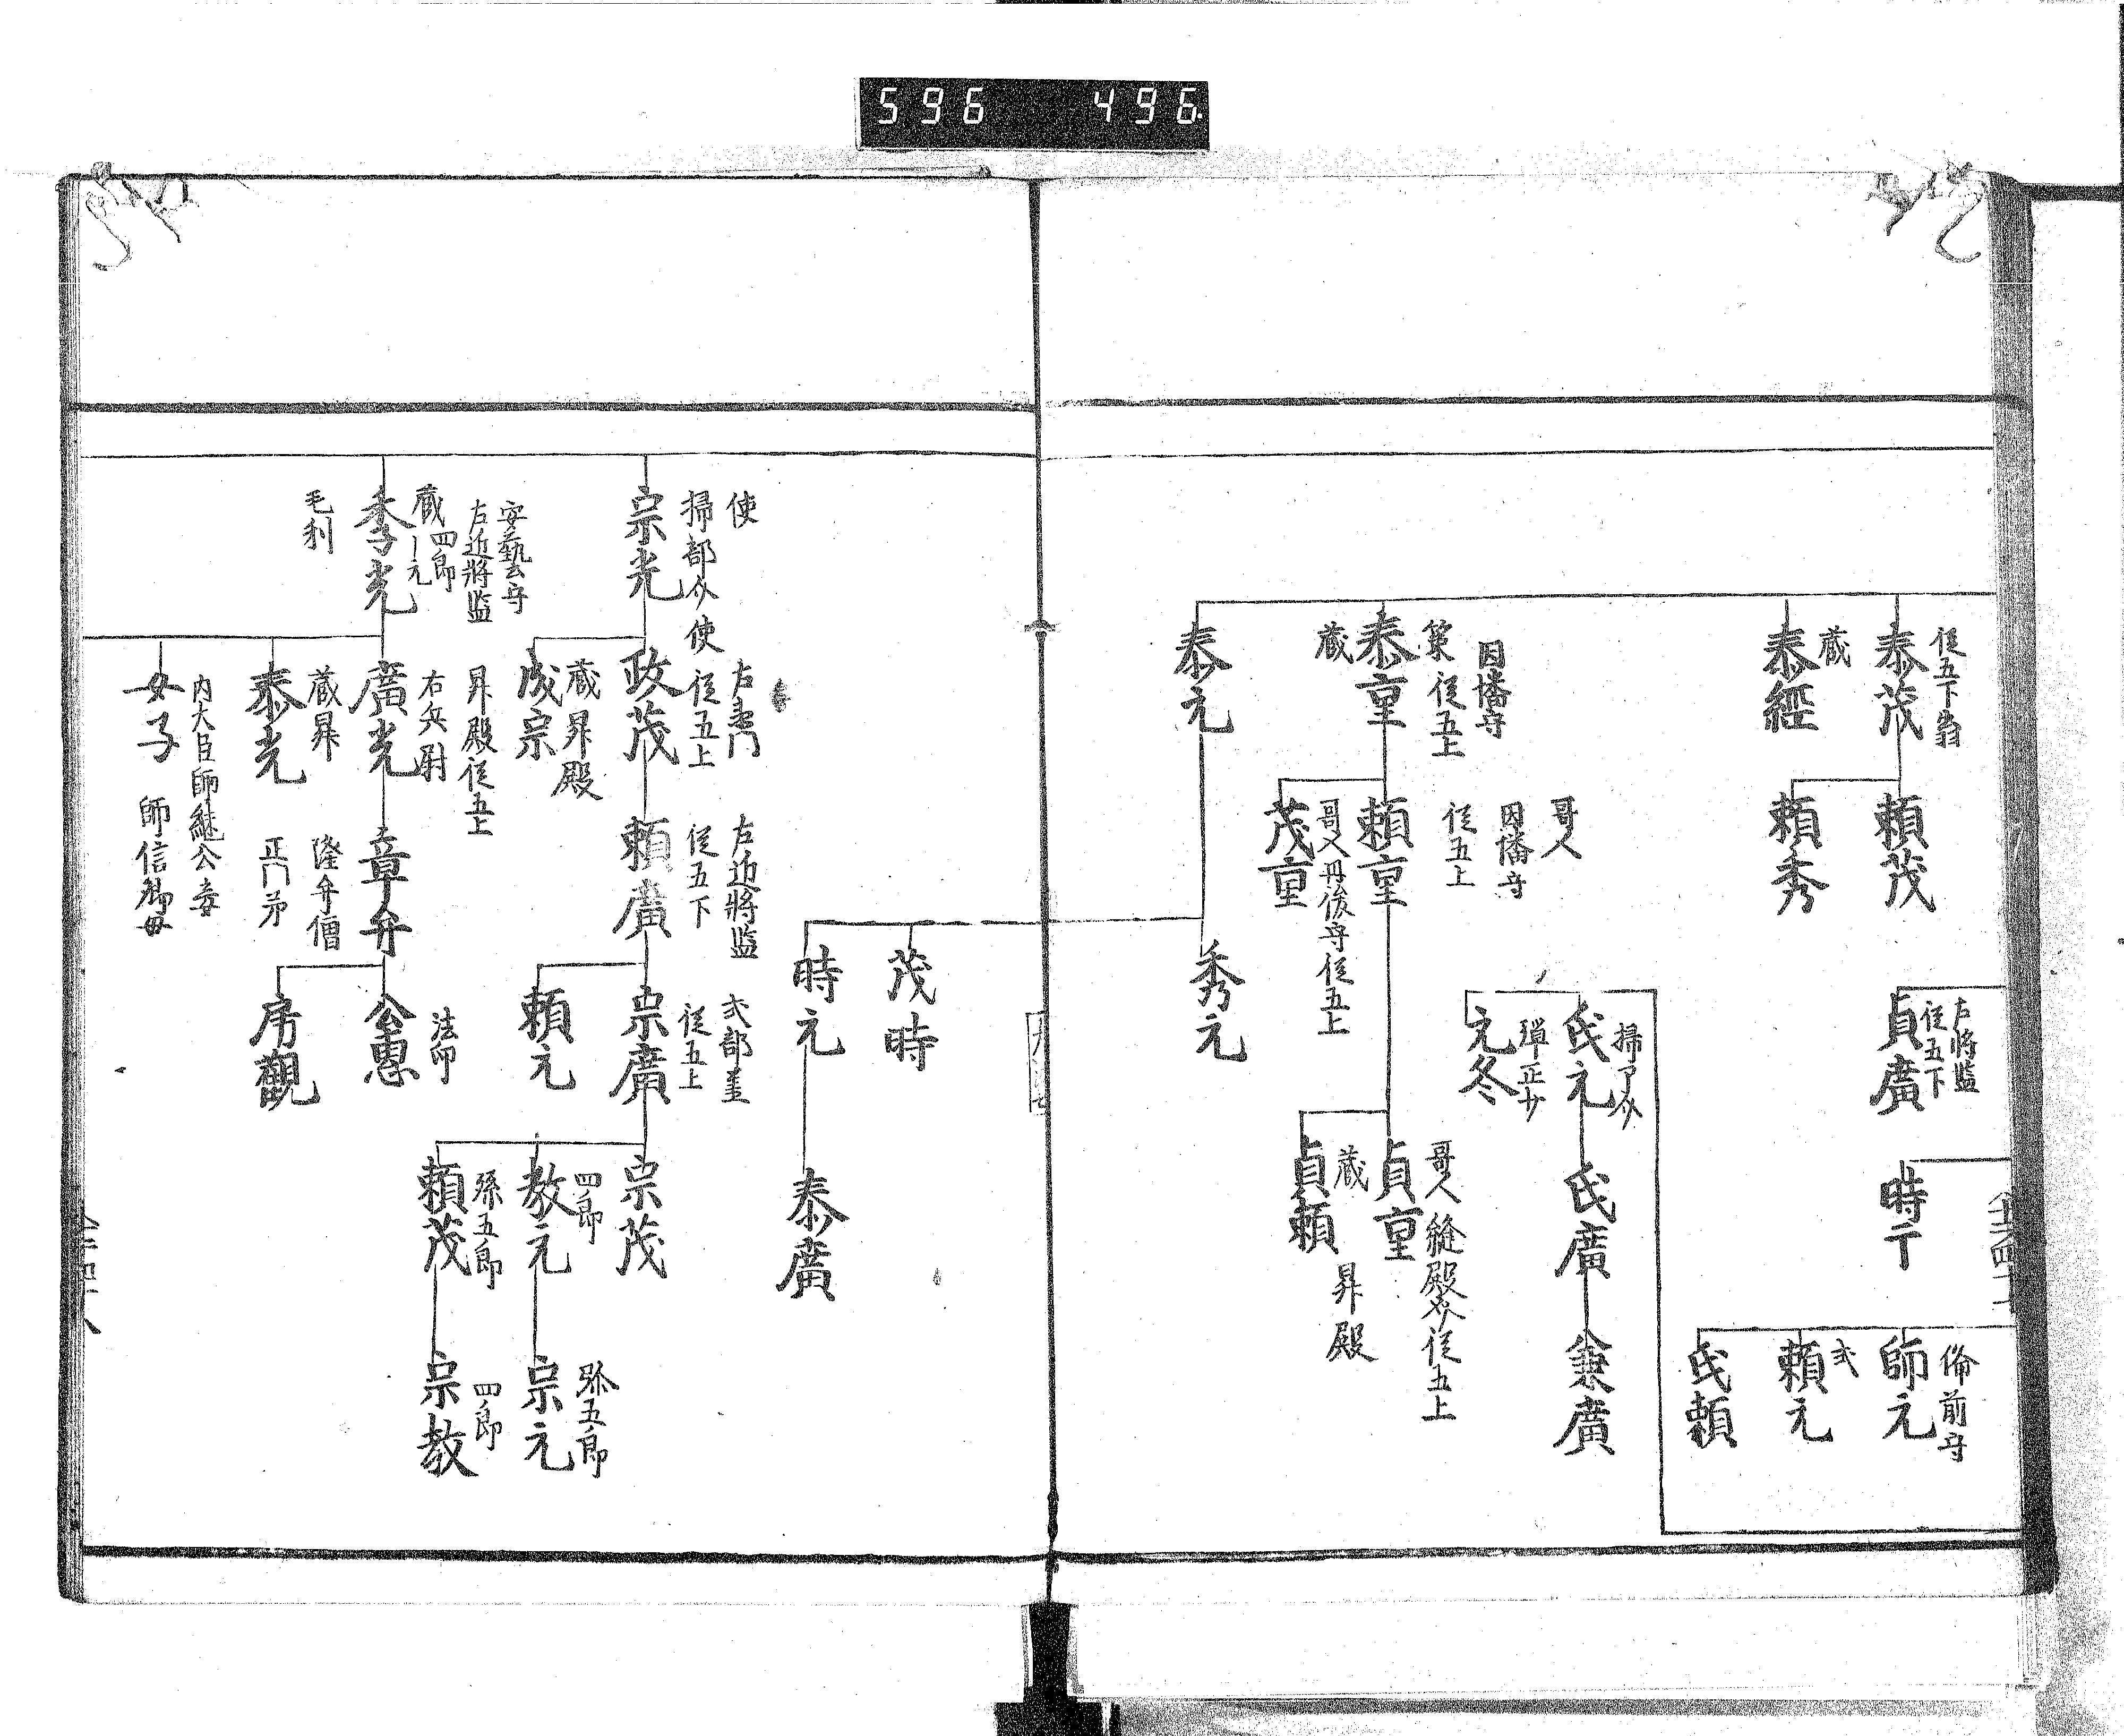 596 496
従五下
泰茂
蔵
泰經
頼茂
頼秀
左將監
従五下
貞廣
時
俻前守
師元
式
頼元
氏頼
氏元
氏廣
兼廣
彈正少
元冬
因幡守
策 従五上
泰重
蔵
哥人
因幡守
従五上
頼重
哥人丹後守従五上
茂重
哥人 縫殿 従五上
貞重
蔵 昇殿
貞頼
泰元
秀元
茂時
時元
泰廣
使
掃部 使
宗光
左 門
従五上
政茂
蔵 昇殿
成宗
左近將監
従五下
頼廣
式部
従五上
宗廣
頼元
宗茂
四郎
教元
孫五郎
頼茂
弥五郎
宗元
四郎
宗教
安藝守
左近將監
四郎
蔵一元
季光
毛利
昇殿従五上
右兵尉
廣光
蔵昇
泰光
内大臣師継公妾
女子
師信卿母
章弁
隆弁僧
正門弟
法印
公惠
房觀